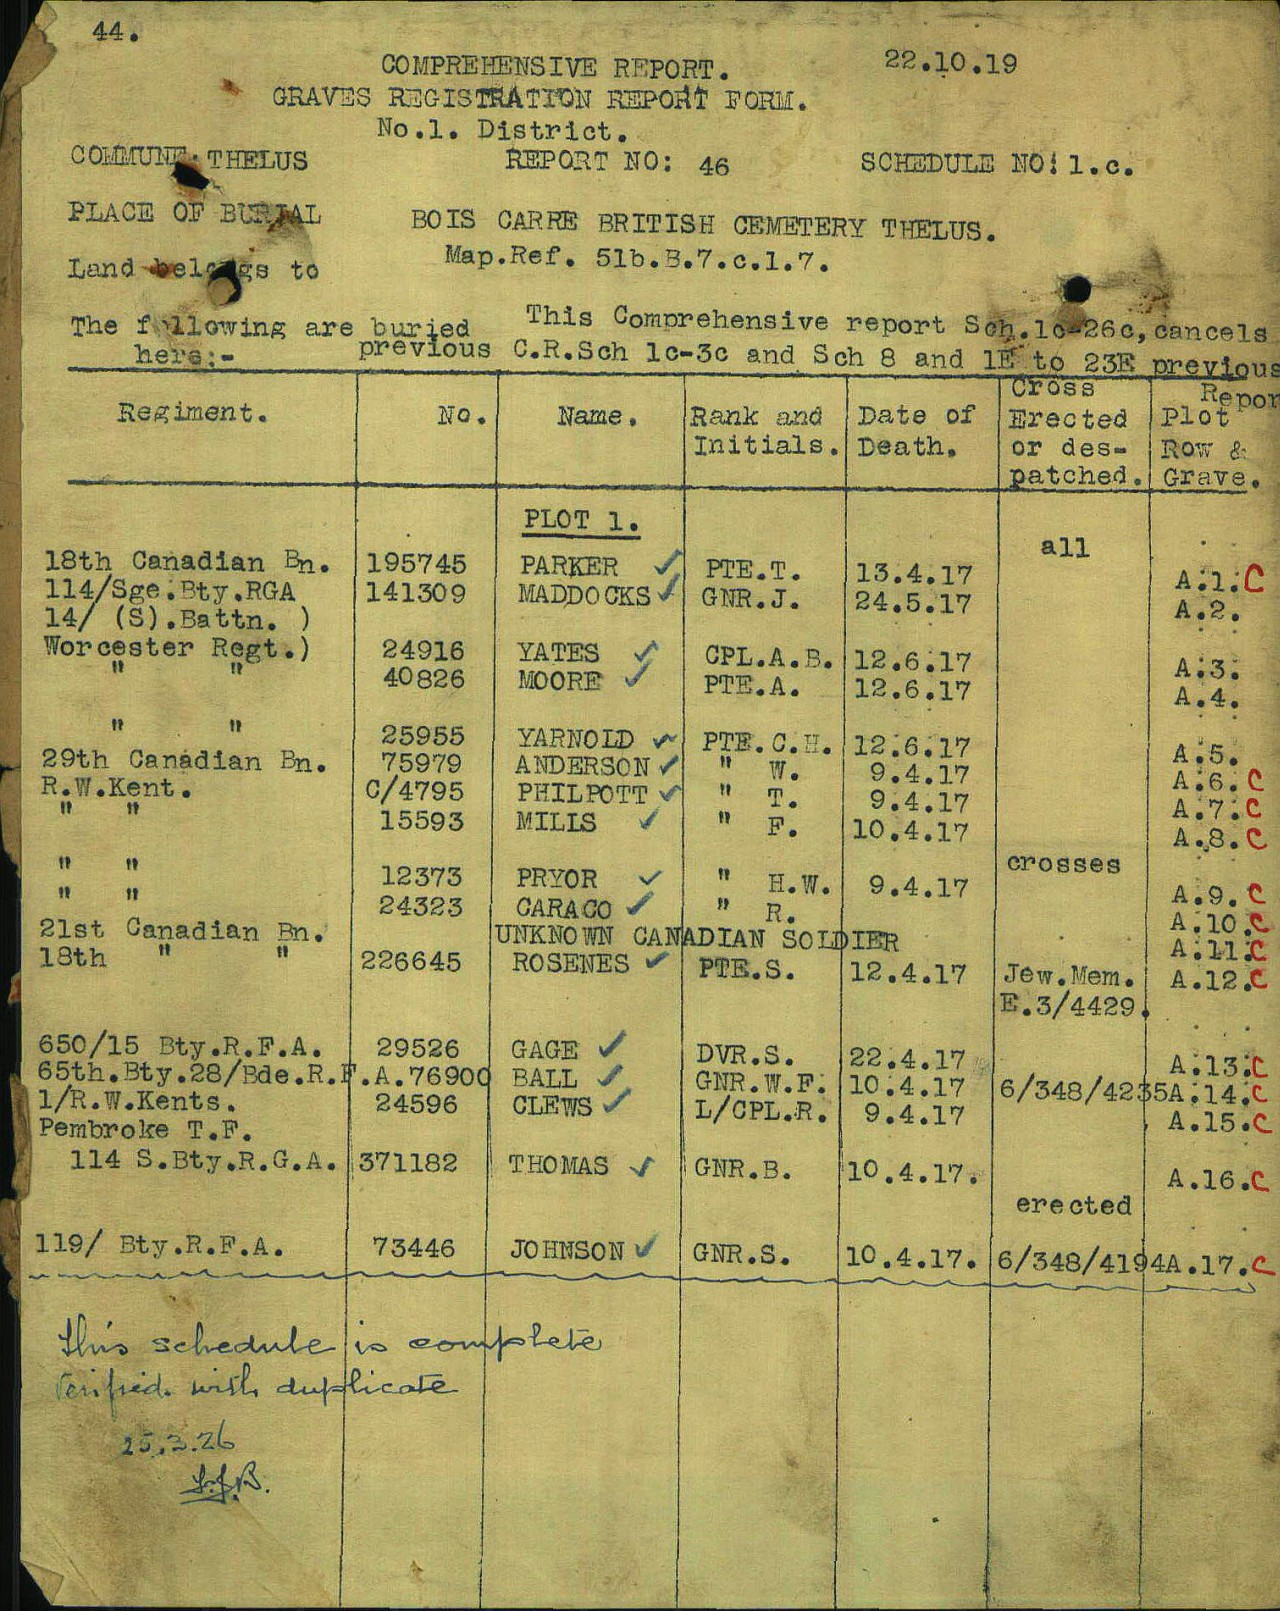 44.
COMPREHENSIVE REPORT. 22.10.19
GRAVES REGISTRATION REPORT FORM.
No.1. District.
COMMUNE: THELUS REPORT NO: 46 SCHEDULE NO: 1.c.
PLACE OF BURIAL BOIS CARRE BRITISH CEMETERY THELUS.
Land belongs to Map.Ref. 51b.B.7.c.1.7.
The following are buried This Comprehensive report Sch.1c-26c, cancels
here:- previous C.R.Sch 1c-3c and Sch 8 and 1E to 23E previous
Regiment. No. Name. Rank and Initials. Date of Death. Cross Erected or des-patched. Repor Plot Row & Grave.
PLOT 1.
all
18th Canadian Bn. 195745 PARKER ✓ PTE.T. 13.4.17 A.1. C
114/Sge.Bty.RGA 141309 MADDOCKS ✓ GNR.J. 24.5.17 A.2.
14/ (S).Battn. )
Worcester Regt.) 24916 YATES ✓ CPL.A.B. 12.6.17 A.3.
" " 40826 MOORE ✓ PTE.A. 12.6.17 A.4.
" " 25955 YARNOLD ✓ PTE.C.H. 12.6.17 A.5.
29th Canadian Bn. 75979 ANDERSON ✓ " W. 9.4.17 A.6. C
R.W.Kent. C/4795 PHILPOTT ✓ " T. 9.4.17 A.7. C
" " 15593 MILLS ✓ " F. 10.4.17 A.8. C
crosses
" " 12373 PRYOR ✓ " H.W. 9.4.17 A.9. C
" " 24323 CARACO ✓ " R. A.10. C
21st Canadian Bn. UNKNOWN CANADIAN SOLDIER A.11. C
18th " " 226645 ROSENES ✓ PTE.S. 12.4.17 Jew.Mem. A.12. C
E.3/4429.
650/15 Bty.R.F.A. 29526 GAGE ✓ DVR.S. 22.4.17 A.13. C
65th.Bty.28/Bde.R.F.A. 76900 BALL ✓ GNR.W.F. 10.4.17 6/348/4235 A.14. C
1/R.W.Kents. 24596 CLEWS ✓ L/CPL.R. 9.4.17 A.15. C
Pembroke T.F.
114 S.Bty.R.G.A. 371182 THOMAS ✓ GNR.B. 10.4.17. A.16. C
erected
119/ Bty.R.F.A. 73446 JOHNSON ✓ GNR.S. 10.4.17. 6/348/4194 A.17. C
This schedule is complete
Verified with duplicate
25.3.26